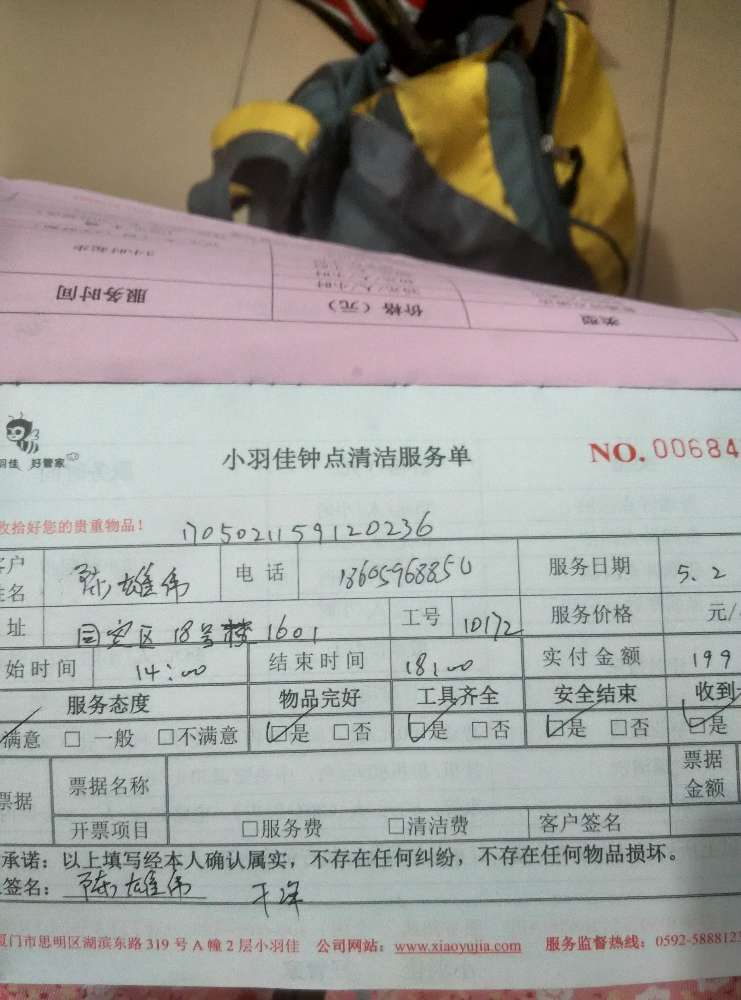 服务时间
价格（元）
类型
羽佳 好管家
小羽佳钟点清洁服务单
NO. 00684
收拾好您的贵重物品！
170502115912023​6
客户姓名 陈雄伟 电话 服务日期 5.2
址 18号楼1601 工号 10172 服务价格 元/
始时间 14:00 结束时间 18:00 实付金额 199
服务态度 物品完好 工具齐全 安全结束 收到
满意 □ 一般 □不满意 □是 □否 □是 □否 □是 □否 □是
票据 票据名称 票据金额
开票项目 □服务费 □清洁费 客户签名
承诺：以上填写经本人确认属实，不存在任何纠纷，不存在任何物品损坏。
签名：陈雄伟 干净
厦门市思明区湖滨东路 319 号 A 幢 2 层小羽佳 公司网站：www.xiaoyujia.com 服务监督热线：0592-5888123